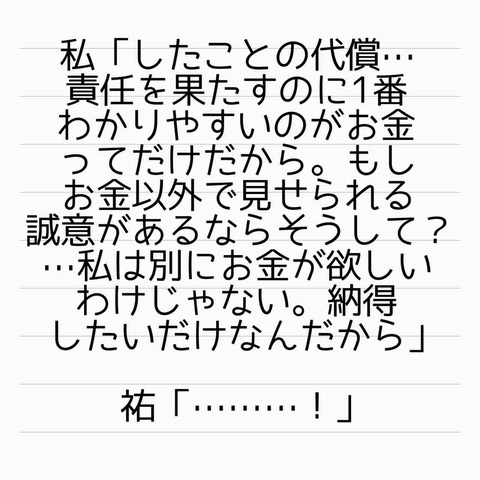 私「したことの代償…
責任を果たすのに1番
わかりやすいのがお金
ってだけだから。もし
お金以外で見せられる
誠意があるならそうして？
…私は別にお金が欲しい
わけじゃない。納得
したいだけなんだから」
祐「………！」